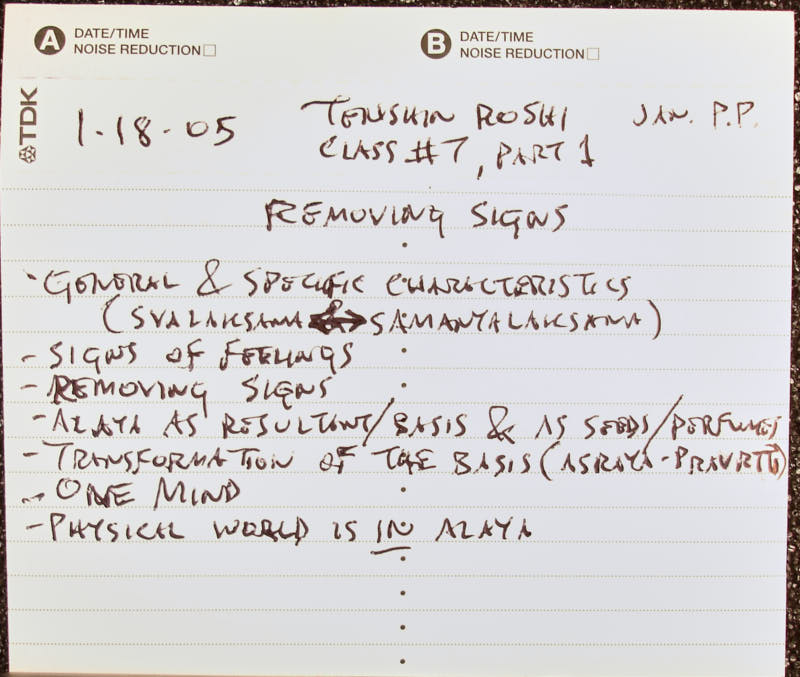 A DATE/TIME NOISE REDUCTION
B DATE/TIME NOISE REDUCTION
TDK
1-18-05 TENSHIN ROSHI JAN. P.P.
CLASS #7, PART 1
REMOVING SIGNS
- GENERAL & SPECIFIC CHARACTERISTICS
(SVALAKSANA ↔ SAMANYALAKSANA)
- SIGNS OF FEELINGS
- REMOVING SIGNS
- ALAYA AS RESULTANT/BASIS & AS SEEDS/PERFUMES
- TRANSFORMATION OF THE BASIS (ASRAYA-PRAVRTTI)
- ONE MIND
- PHYSICAL WORLD IS IN ALAYA